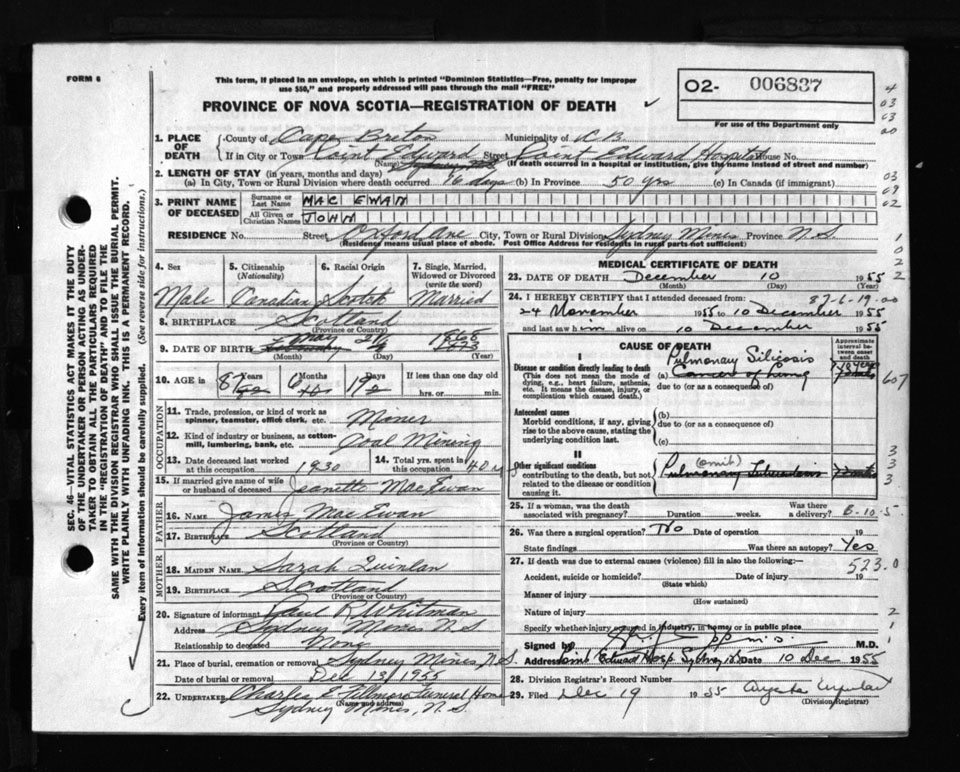 FORM 6
This form, if placed in an envelope, on which is printed "Dominion Statistics—Free, penalty for improper
use $50," and properly addressed will pass through the mail "FREE"
PROVINCE OF NOVA SCOTIA—REGISTRATION OF DEATH
O2- 006837
For use of the Department only
4
03
03
00
03
09
02
1
0
2
2
SEC. 46—VITAL STATISTICS ACT MAKES IT THE DUTY
OF THE UNDERTAKER OR PERSON ACTING AS UNDER-
TAKER TO OBTAIN ALL THE PARTICULARS REQUIRED
IN THE "REGISTRATION OF DEATH" AND TO FILE THE
SAME WITH THE DIVISION REGISTRAR WHO SHALL ISSUE THE BURIAL PERMIT.
WRITE PLAINLY WITH UNFADING INK. THIS IS A PERMANENT RECORD.
Every item of information should be carefully supplied. (See reverse side for instructions.)
1. PLACE OF DEATH County of Cape Breton Municipality of C B
If in City or Town Point Edward Street Point Edward Hospital House No.
(Name) (If death occurred in a hospital or institution, give the name instead of street and number)
2. LENGTH OF STAY (in years, months and days)
(a) In City, Town or Rural Division where death occurred 16 days (b) In Province 50 yrs (c) In Canada (if immigrant)
3. PRINT NAME OF DECEASED Surname or Last Name MAC EWAN
All Given or Christian Names JOHN
RESIDENCE No. Street Oxford Ave City, Town or Rural Division Sydney Mines Province N.S.
(Residence means usual place of abode. Post Office Address for residents in rural parts not sufficient)
4. Sex 5. Citizenship (Nationality) 6. Racial Origin 7. Single, Married, Widowed or Divorced (write the word)
Male Canadian Scotch Married
8. BIRTHPLACE Scotland
(Province or Country)
9. DATE OF BIRTH May 21 1868
(Month) (Day) (Year)
10. AGE in 87 Years 6 Months 19 Days If less than one day old
hrs. or min.
OCCUPATION
11. Trade, profession, or kind of work as spinner, teamster, office clerk, etc. Miner
12. Kind of industry or business, as cotton-mill, lumbering, bank, etc. Coal Mining
13. Date deceased last worked at this occupation 1930 14. Total yrs. spent in this occupation 40
15. If married give name of wife or husband of deceased Jeanette MacEwan
FATHER
16. NAME James MacEwan
17. BIRTHPLACE Scotland
(Province or Country)
MOTHER
18. MAIDEN NAME Sarah Quinlan
19. BIRTHPLACE Scotland
(Province or Country)
20. Signature of informant Paul R Whitman
Address Sydney Mines N.S
Relationship to deceased None
21. Place of burial, cremation or removal Sydney Mines, N.S.
Date of burial or removal Dec 13/1955
22. UNDERTAKER Charles E Fillmore Funeral Home
(Name and address)
Sydney Mines, N.S.
MEDICAL CERTIFICATE OF DEATH
23. DATE OF DEATH December 10 1955
(Month) (Day) (Year)
24. I HEREBY CERTIFY that I attended deceased from: 87-6-19-00
24 November 1955 to 10 December 1955
and last saw him alive on 10 December 1955
CAUSE OF DEATH
Approximate interval between onset and death
I
Disease or condition directly leading to death
(This does not mean the mode of dying, e.g., heart failure, asthenia, etc. It means the disease, injury, or complication which caused death.)
Pulmonary Silicosis
(a) Cancer of Lung
due to (or as a consequence of)
607
Antecedent causes
Morbid conditions, if any, giving rise to the above cause, stating the underlying condition last.
(b)
due to (or as a consequence of)
(c)
II
Other significant conditions
contributing to the death, but not related to the disease or condition causing it.
(omit)
Pulmonary Tuberculosis
3
3
3
25. If a woman, was the death associated with pregnancy? Duration weeks. Was there a delivery? 6-10-5
26. Was there a surgical operation? No Date of operation 19
State findings Was there an autopsy? Yes
27. If death was due to external causes (violence) fill in also the following:—
523.0
Accident, suicide or homicide? Date of injury 19
(State which)
Manner of injury
(How sustained)
Nature of injury
2
Specify whether injury occurred in industry, in home, or in public place
1
Signed by M.D.
1
Address Point Edward Hosp Sydney NS Date 10 Dec 1955
28. Division Registrar's Record Number
29. Filed Dec 19 1955
(Division Registrar)